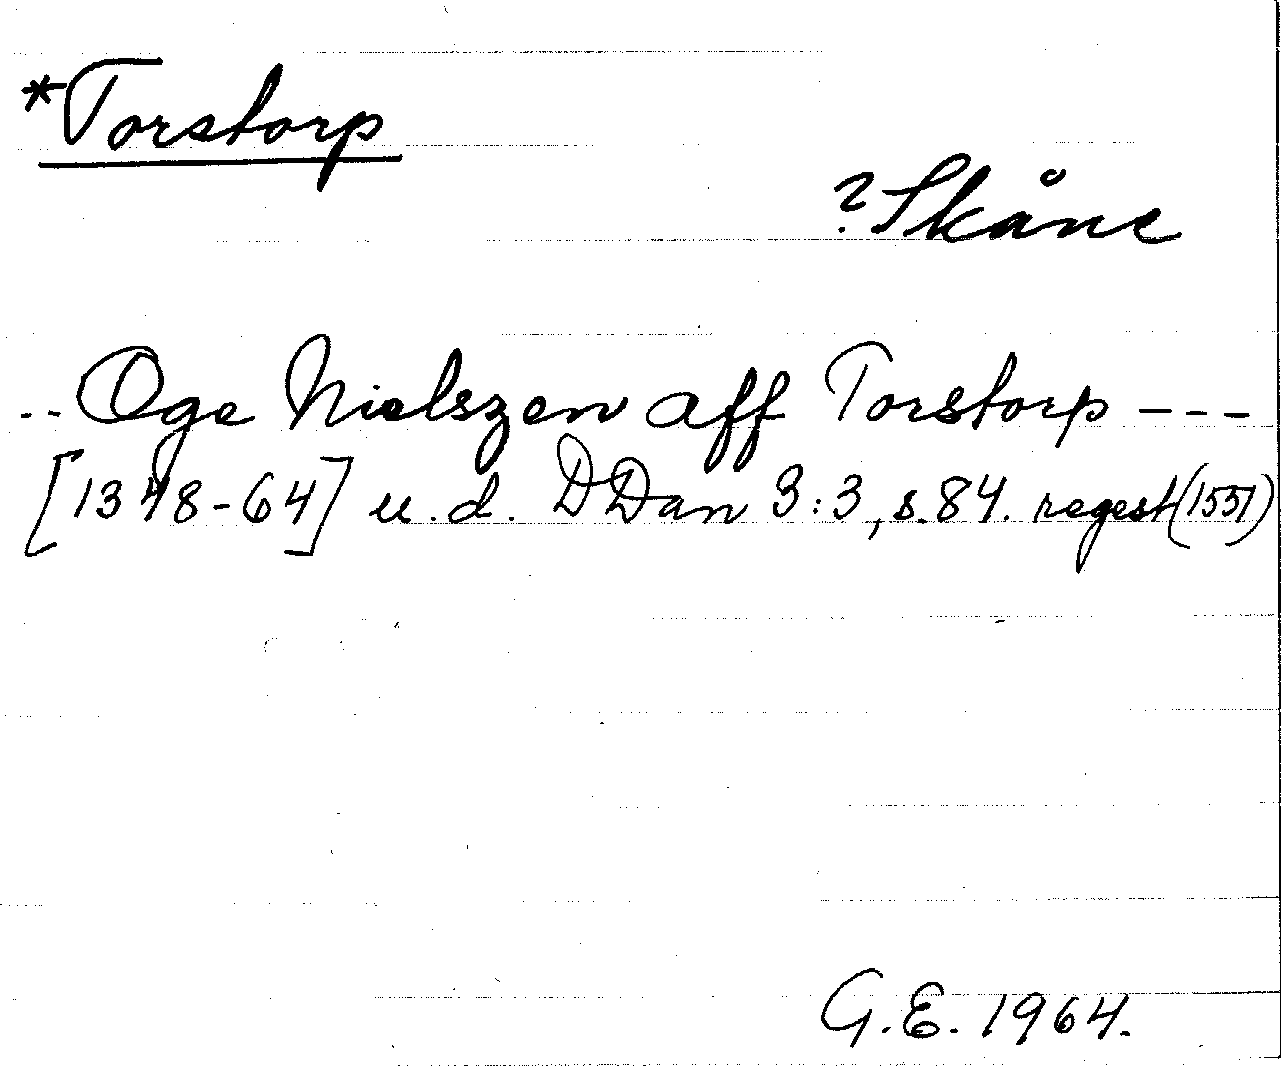 *Torstorp
? Skåne
-- Oge Nielszen aff Torstorp ---
[1348-64] u.d. DDan 3:3, s.84. regest (1551)
G.E. 1964.